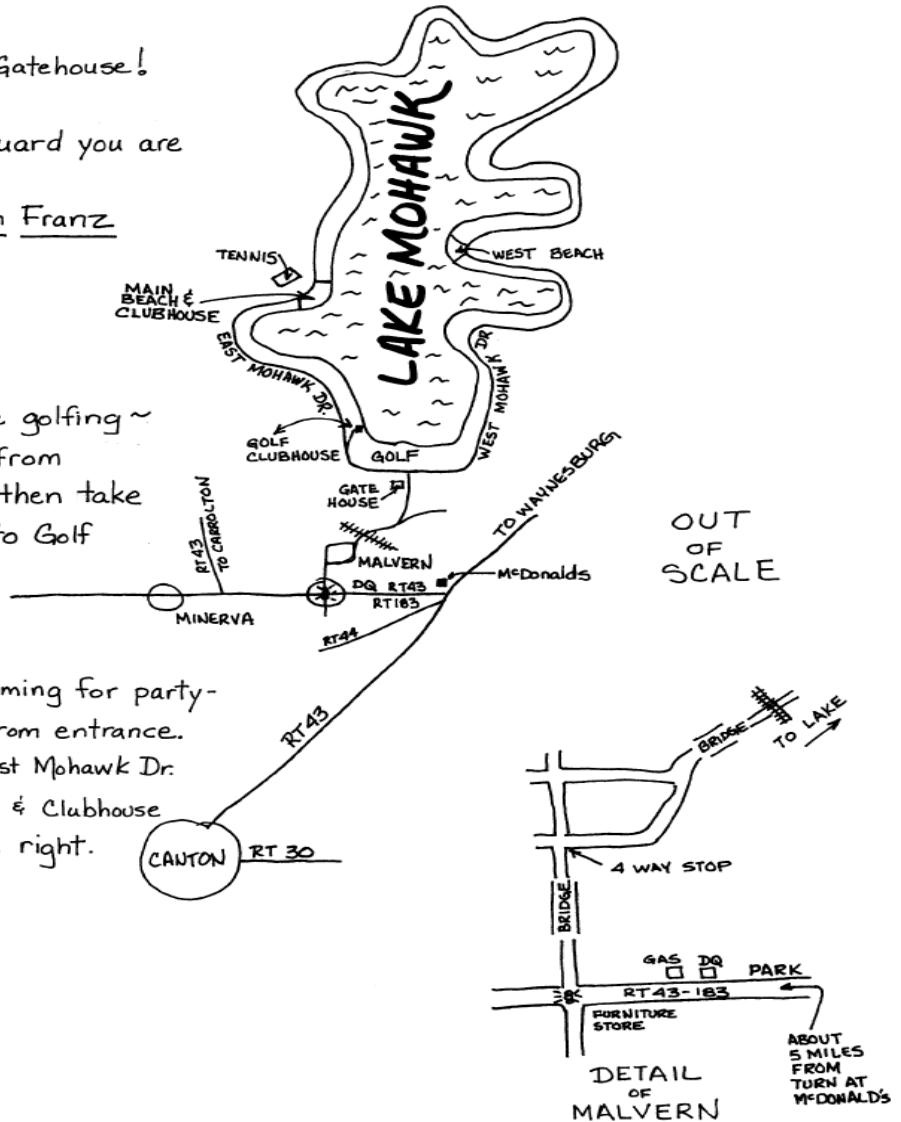 Gatehouse!
you are
Franz
golfing ~
from
then take
to Golf
for party-
from entrance.
Mohawk Dr.
& Clubhouse
right.
LAKE MOHAWK
TENNIS
WEST BEACH
MAIN
BEACH &
CLUBHOUSE
EAST MOHAWK DR.
WEST MOHAWK DR
GOLF
CLUBHOUSE
GOLF
GATE
HOUSE
TO WAYNESBURG
RT43
TO CARROLTON
MALVERN
McDonalds
DQ RT43
RT183
MINERVA
RT44
RT43
CANTON
RT 30
OUT
OF
SCALE
BRIDGE
TO LAKE
4 WAY STOP
BRIDGE
GAS DQ PARK
RT43-183
FURNITURE
STORE
ABOUT
5 MILES
FROM
TURN AT
McDONALD'S
DETAIL
OF
MALVERN